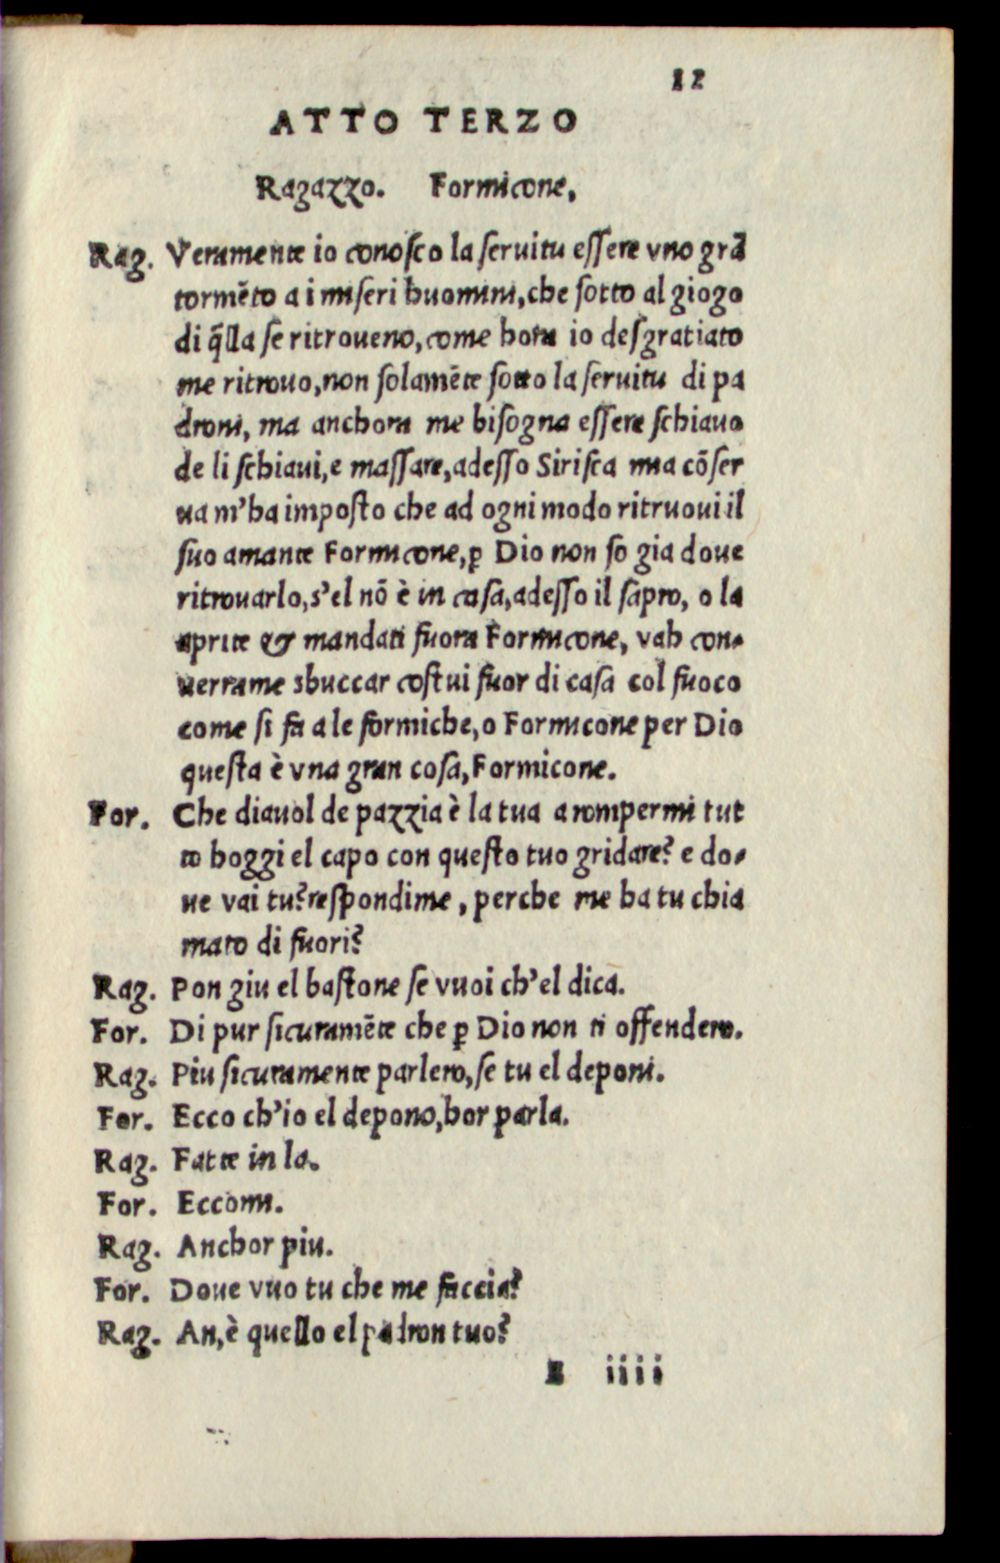 12
ATTO TERZO
Ragazzo. Formicone,
Rag. Veramente io conoſco la ſeruitu eſſere vno grã
tormẽto a i miſeri huomini, che ſotto al giogo
di q̃lla ſe ritroueno, come hora io deſgratiato
me ritrouo, non ſolamẽte ſotto la ſeruitu di pa
droni, ma anchora me biſogna eſſere ſchiauo
de li ſchiaui, e maſſare, adeſſo Siriſca mia cõſer
ua m'ha impoſto che ad ogni modo ritruoui il
ſuo amante Formicone, ꝑ Dio non ſo gia doue
ritrouarlo, s'el nõ è in caſa, adeſſo il ſapro, o la
aprite & mandati fuora Formicone, vah con-
uerrame sbuccar coſtui fuor di caſa col fuoco
come ſi fa a le formiche, o Formicone per Dio
queſta è vna gran coſa, Formicone.
For. Che diauol de pazzia è la tua a rompermi tut
to hoggi el capo con queſto tuo gridare? e do-
ue vai tu? reſpondime, perche me ha tu chia
mato di fuori?
Rag. Pon giu el baſtone ſe vuoi ch'el dica.
For. Di pur ſicuramẽte che ꝑ Dio non ti offendero.
Rag. Piu ſicuramente parlero, ſe tu el deponi.
For. Ecco ch'io el depono, hor parla.
Rag. Fatte in la.
For. Eccomi.
Rag. Anchor piu.
For. Doue vuo tu che me faccia?
Rag. An, è quello el padron tuo?
iiii